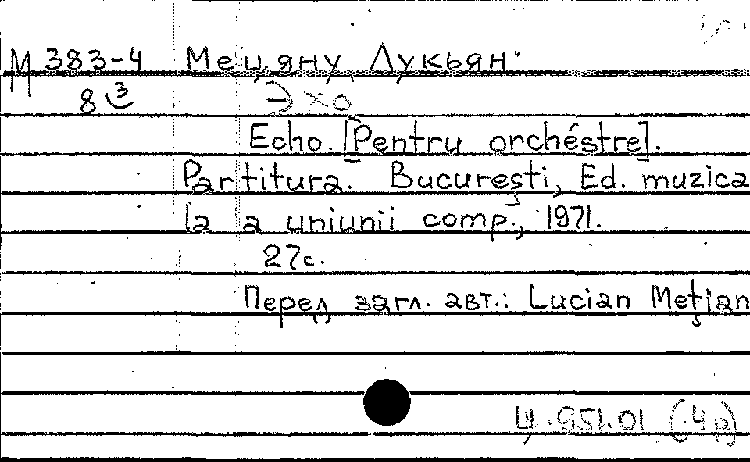 М 383-4 Мецяну Лукьян.
8 3 Эхо
Echo. [Pentru orchéstre].
Partitura. Bucureşti, Ed. muzica
la a uniunii comp., 1971.
27с.
Перед загл. авт.: Lucian Meţian